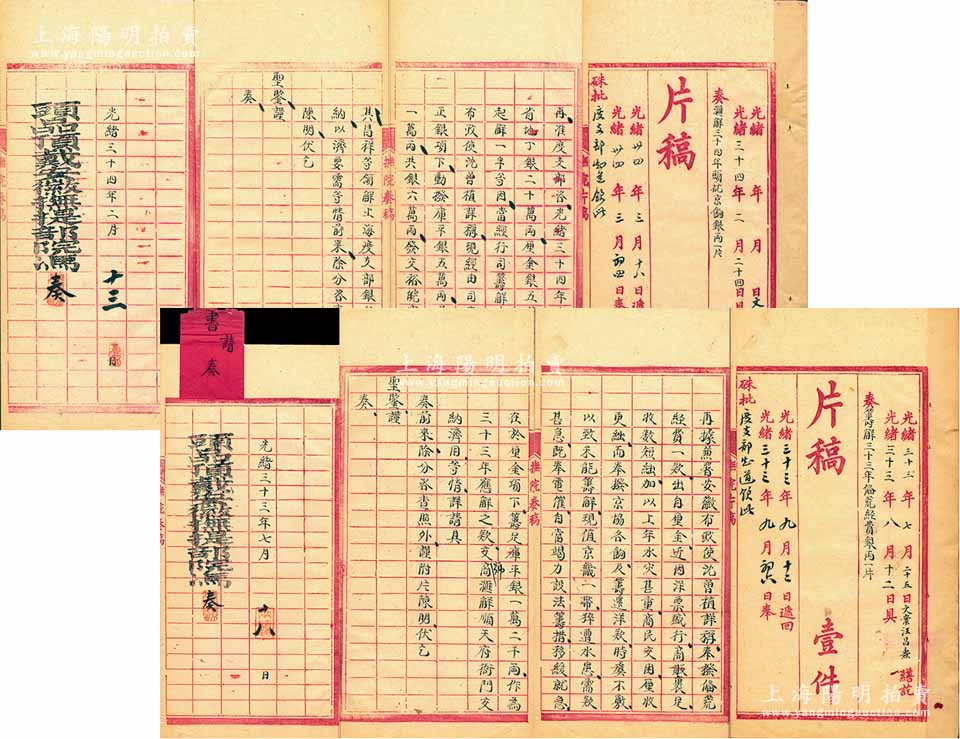 上海陽明拍賣
www.yangmingauction.com
片稿
光緒 年 月 日
光緒三十四年二月二十四日具
奏滙解三十四年頭批京餉銀兩一片
光緒卅四年三月十六日遞
光緒卅四年三月初四日奉
硃批度支部知道欽此
撫院片稿
再准度支部咨光緒三十四年
省地丁銀二十萬兩厘金銀五
起解一半等因當經行司籌解
布政使沈曾植詳稱現經由司
正銀項下動撥庫平銀五萬兩
一萬兩共銀六萬兩發交裕皖
撫院奏稿
其昌祥等領解上海度支部銀
納以濟要需等情前來除分咨
陳明伏乞
聖鑒謹
奏
光緒三十四年二月十三日
頭品頂戴安徽巡撫部院馮
奏
書請奏
片稿
壹件
光緒三十三年七月二十五日文案汪昌燾
光緒三十三年八月十二日具
奏籌解三十三年備荒經費銀兩一片
光緒三十三年九月十二日遞回
光緒三十三年九月初六日奉
硃批度支部知道欽此
撫院片稿
再據署安徽布政使沈曾植詳稱奉撥備荒
經費一款出自厘金近因洋票盛行商販裹足
收數短絀加以上年水災甚重商民交困厘收
更絀而奉撥京協各餉及籌還洋款時虞不敷
以致未能籌解現值京畿一帶猝遭水患需款
甚急既奉電催自當竭力設法籌措移緩就急
撫院奏稿
在於厘金項下籌足庫平銀一萬二千兩作為
三十三年應解之款交商滙解順天府衙門交
納濟用等情詳請具
奏前來除分咨查照外謹附片陳明伏乞
聖鑒謹
奏
光緒三十三年七月十八日
頭品頂戴安徽巡撫部院馮
奏
上海陽明拍賣
www.yangmingauction.com
上海陽明拍賣
www.yangmingauction.com